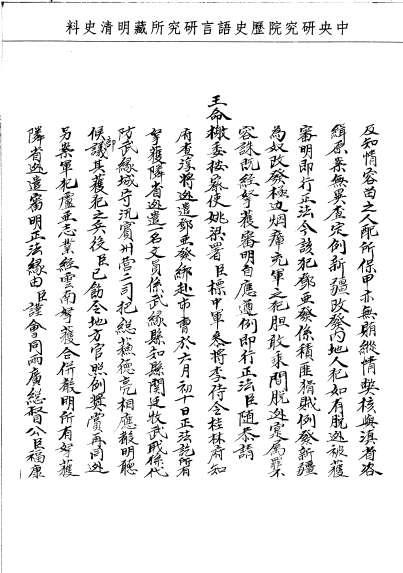 中央研究院歷史語言研究所藏明清史料
及知情容留之人配所保甲亦無賄縱情弊核與滇省咨
緝原案無異查定例新疆改發內地人犯如有脫逃被獲
審明即行正法今該犯鄧亞發係積匪猾賊例發新疆
為奴改發極邊烟瘴充軍之犯胆敢乘間脫逃實屬罪不
容誅既經拏獲審明自應遵例即行正法臣隨恭請
王命檄委按察使姚棻署臣標中軍叅將李侍令桂林府知
府查淳將逃遣鄧亞發綁赴市曹於六月初十日正法訖所有
拏獲隣省逃遣一名文員係武緣縣知縣閔廷牧武職係代
防武緣城守汛賓州營二司把總蘓德亮相應敘明聽
候部議其獲犯之兵役臣已飭令地方官照例獎賞再同逃
另案軍犯盧亞志業經雲南拏獲合併敘明所有拏獲
隣省逃遣審明正法緣由臣謹會同兩廣總督公臣福康